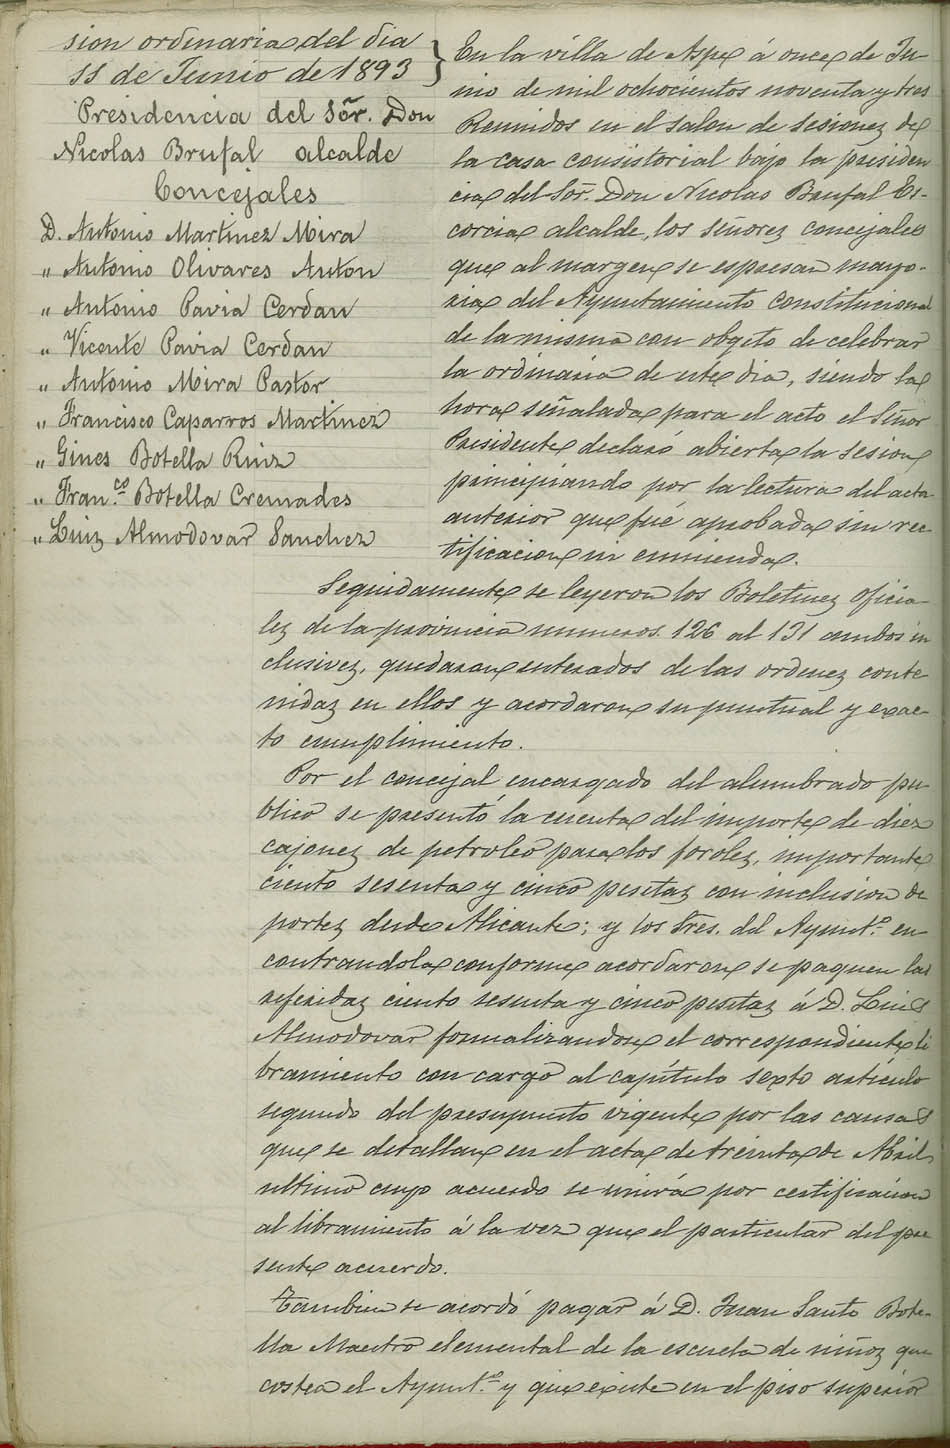 sion ordinaria del dia
11 de Junio de 1893
Presidencia del Sõr. Don
Nicolas Brufal alcalde
Concejales
D. Antonio Martinez Mira
" Antonio Olivares Anton
" Antonio Pavia Cerdan
" Vicente Pavia Cerdan
" Antonio Mira Pastor
" Francisco Caparros Martinez
" Gines Botella Ruiz
" Fran.co Botella Cremades
" Luiz Almodovar Sanchez
En la villa de Aspe á once de Ju-
nio de mil ochocientos noventa y tres
Reunidos en el salon de sesionez de
la casa consistorial bajo la presiden
cia del Sõr. Don Nicolas Brufal Es-
corcia alcalde, los señorez concejales
que al margen se espresan mayo-
ria del Ayuntamiento constitucional
de la misma con obgeto de celebrar
la ordinaria de este dia, siendo la
hora señalada para el acto el Señor
Presidente declaró abierta la sesion
principiando por la lectura del acta
anterior que fué aprobada sin rec-
tificacion ni enmienda.
Seguidamente se leyeron los Boletinez oficia-
lez de la provincia numeros 126 al 131 ambos in
clusivez, quedaron enterados de las ordenez conte
nidaz en ellos y acordaron su puntual y exac-
to cumplimiento.
Por el concejal encargado del alumbrado pu
blico se presentó la cuenta del importe de diez
cajonez de petroleo para los farolez, importante
ciento sesenta y cinco pesetaz con inclusion de
portez desde Alicante; y los Sres. del Ayunt.o en-
contrandola conforme acordaron se paguen las
referidaz ciento sesenta y cinco pesetaz á D. Luis
Almodovar formalizandose el correspondiente li
bramiento con cargo al capítulo sexto artículo
segundo del presupuesto vigente por las causas
que se detallan en el acta de treinta de Abril
ultimo cuyo acuerdo se unirá por certificacion
al libramiento á la vez que el particular del pre
sente acuerdo.
Tambien se acordó pagar á D. Juan Santo Bote-
lla Maestro elemental de la escuela de niñoz que
costea el Ayunt.o y que existe en el piso superior